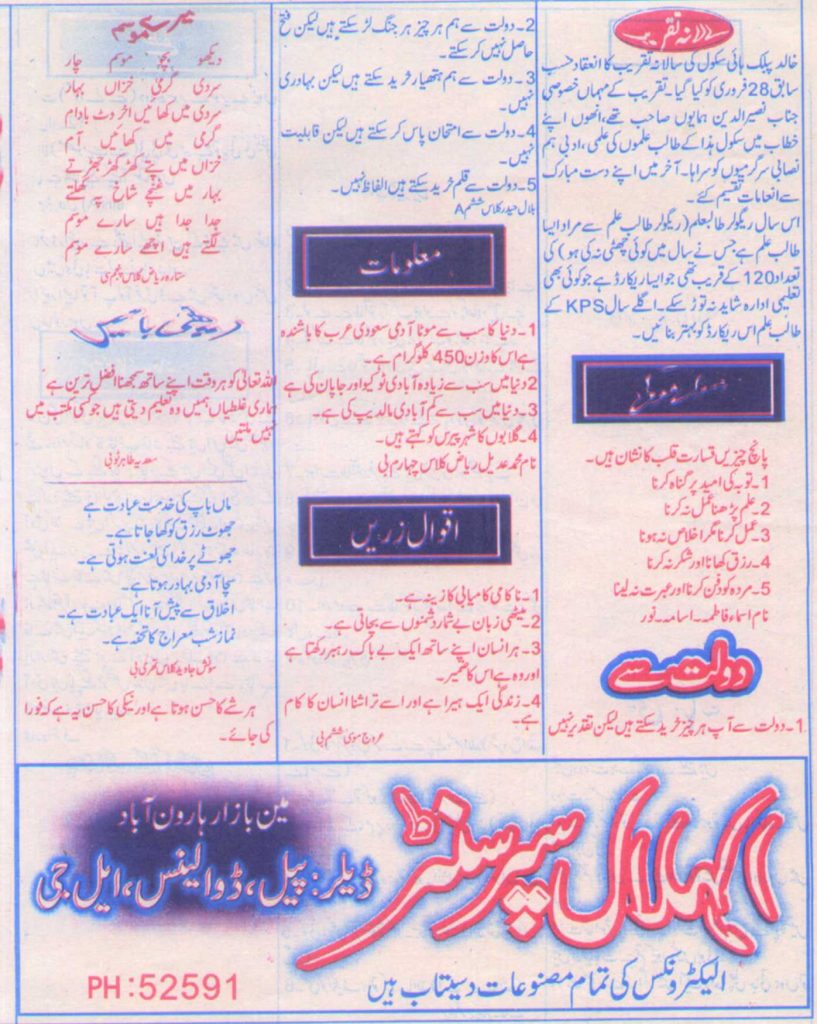 سالانہ تقریب
خالد پبلک ہائی سکول کی سالانہ تقریب کا انعقاد حسب
سابق 28 فروری کو کیا گیا۔ تقریب کے مہمان خصوصی
جناب نصیر الدین ہمایوں صاحب تھے، انھوں اپنے
خطاب میں سکول ہذا کے طالب علموں کی علمی، ادبی ہم
نصابی سرگرمیوں کو سراہا۔ آخر میں اپنے دست مبارک
سے انعامات تقسیم کئے۔
اس سال ریگولر طالبعلم (ریگولر طالب علم سے مراد ایسا
طالب علم ہے جس نے سال میں کوئی چھٹی نہ کی ہو) کی
تعداد 120 کے قریب تھی جو ایسا ریکارڈ ہے جو کوئی بھی
تعلیمی ادارہ شاید نہ توڑ سکے۔ اگلے سال KPS کے
طالب علم اس ریکارڈ کو بہتر بنائیں۔
پانچ چیزیں قسارت قلب کا نشان ہیں۔
1۔ توبہ کی امید پر گناہ کرنا
2۔ علم پڑھنا عمل نہ کرنا
3۔ عمل کرنا مگر اخلاص نہ ہونا
4۔ رزق کھانا اور شکر نہ کرنا
5۔ مردہ کو دفن کرنا اور عبرت نہ لینا
نام اسماء فاطمہ۔ اسامہ۔ نور
دولت سے
1۔ دولت سے آپ ہر چیز خرید سکتے ہیں لیکن تقدیر نہیں
2۔ دولت سے ہم ہر چیز ہر جنگ لڑ سکتے ہیں لیکن فتح
حاصل نہیں کر سکتے۔
3۔ دولت سے ہم ہتھیار خرید سکتے ہیں لیکن بہادری
نہیں۔
4۔ دولت سے امتحان پاس کر سکتے ہیں لیکن قابلیت
نہیں۔
5۔ دولت سے قلم خرید سکتے ہیں الفاظ نہیں۔
بلال حیدر کلاس ششم A
معلومات
1۔ دنیا کا سب سے موٹا آدمی سعودی عرب کا باشندہ
ہے اس کا وزن 450 کلوگرام ہے۔
2 دنیا میں سب سے زیادہ آبادی ٹوکیو اور جاپان کی ہے
3۔ دنیا میں سب سے کم آبادی مالدیپ کی ہے۔
4۔ گلابوں کا شہر پیرس کو کہتے ہیں۔
نام محمد عدیل ریاض کلاس چہارم بی
اقوال زریں
1۔ ناکامی کامیابی کا زینہ ہے۔
2۔ میٹھی زبان بے شمار دشمنوں سے بچاتی ہے۔
3۔ ہر انسان اپنے ساتھ ایک بے باک رہبر رکھتا ہے
اور وہ ہے اس کا ضمیر۔
4۔ زندگی ایک ہیرا ہے اور اسے تراشنا انسان کا کام
ہے۔
عروج موسیٰ ششم بی
میرے موسم
دیکھو بچو موسم چار
سردی گرمی خزاں بہار
سردی میں کھائیں اخروٹ بادام
گرمی میں کھائیں آم
خزاں میں پتے کھڑ کھڑ جھڑتے
بہار میں غنچے شاخ پر کھلتے
جدا جدا ہیں سارے موسم
لگتے ہیں اچھے سارے موسم
ستارہ ریاض کلاس پنجم بی
باتیں
اللہ تعالیٰ کو ہر وقت اپنے ساتھ سمجھنا افضل ترین ہے
ہماری غلطیاں ہمیں وہ تعلیم دیتی ہیں جو کسی مکتب میں
نہیں ملتیں
سعدیہ طاہر نو بی
ماں باپ کی خدمت عبادت ہے
جھوٹ رزق کو کھا جاتا ہے۔
جھوٹے پر خدا کی لعنت ہوتی ہے۔
سچا آدمی بہادر ہوتا ہے۔
اخلاق سے پیش آنا ایک عبادت ہے۔
نماز شب معراج کا تحفہ ہے۔
جاوید کلاس تھری بی
ہر شے کا حسن ہوتا ہے اور نیکی کا حسن یہ ہے کہ فورا
کی جائے۔
الہلال سپر سنٹر
مین بازار ہارون آباد
ڈیلر: پیل، ڈوالینس، ایل جی
الیکٹرونکس کی تمام مصنوعات دستیاب ہیں
PH:52591